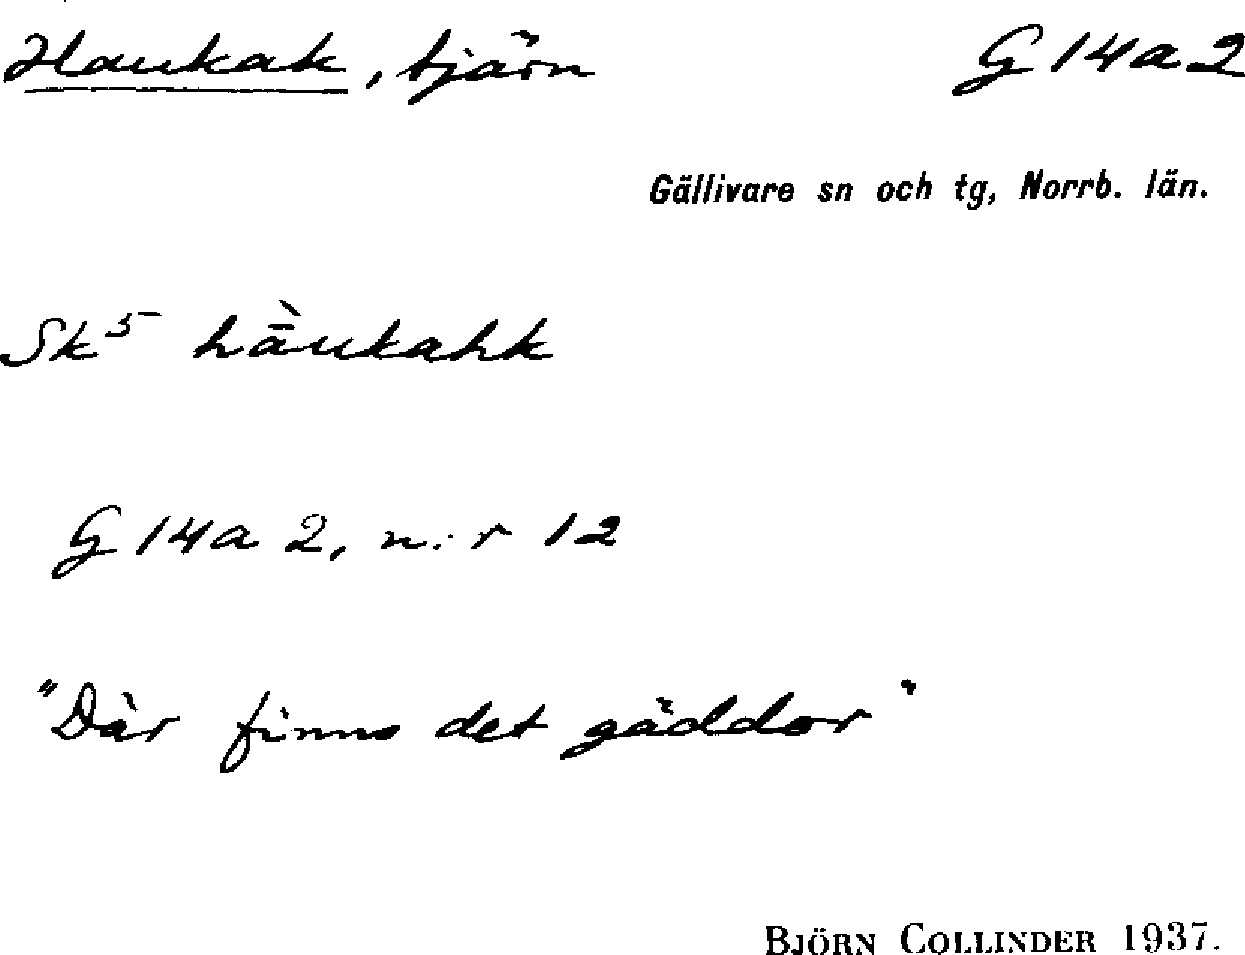 Haukak, tjärn G 14a 2
Gällivare sn och tg, Norrb. län.
Sk⁵ hā̀ukahk
G 14a 2, n:r 12
"Där finns det gäddor"
BJÖRN COLLINDER 1937.